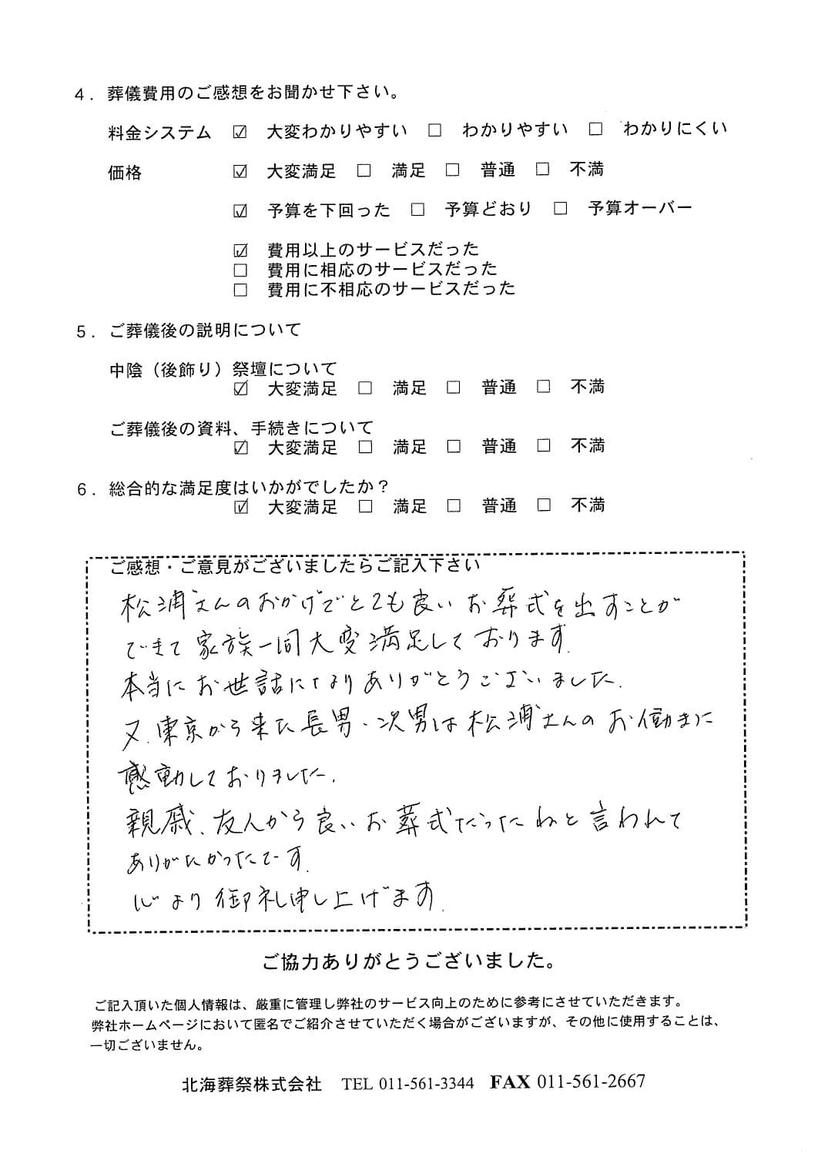 4．葬儀費用のご感想をお聞かせ下さい。
料金システム ☑ 大変わかりやすい □ わかりやすい □ わかりにくい
価格 ☑ 大変満足 □ 満足 □ 普通 □ 不満
☑ 予算を下回った □ 予算どおり □ 予算オーバー
☑ 費用以上のサービスだった
□ 費用に相応のサービスだった
□ 費用に不相応のサービスだった
5．ご葬儀後の説明について
中陰（後飾り）祭壇について
☑ 大変満足 □ 満足 □ 普通 □ 不満
ご葬儀後の資料、手続きについて
☑ 大変満足 □ 満足 □ 普通 □ 不満
6．総合的な満足度はいかがでしたか？
☑ 大変満足 □ 満足 □ 普通 □ 不満
ご感想・ご意見がございましたらご記入下さい
松浦さんのおかげでとても良いお葬式を出すことが
できて家族一同大変満足しております.
本当にお世話になりありがとうございました.
又、東京から来た長男・次男は松浦さんのお働きに
感動しておりました.
親戚、友人から良いお葬式だったねと言われて
ありがたかったです.
心より御礼申し上げます.
ご協力ありがとうございました。
ご記入頂いた個人情報は、厳重に管理し弊社のサービス向上のために参考にさせていただきます。
弊社ホームページにおいて匿名でご紹介させていただく場合がございますが、その他に使用することは、
一切ございません。
北海葬祭株式会社 TEL 011-561-3344 FAX 011-561-2667